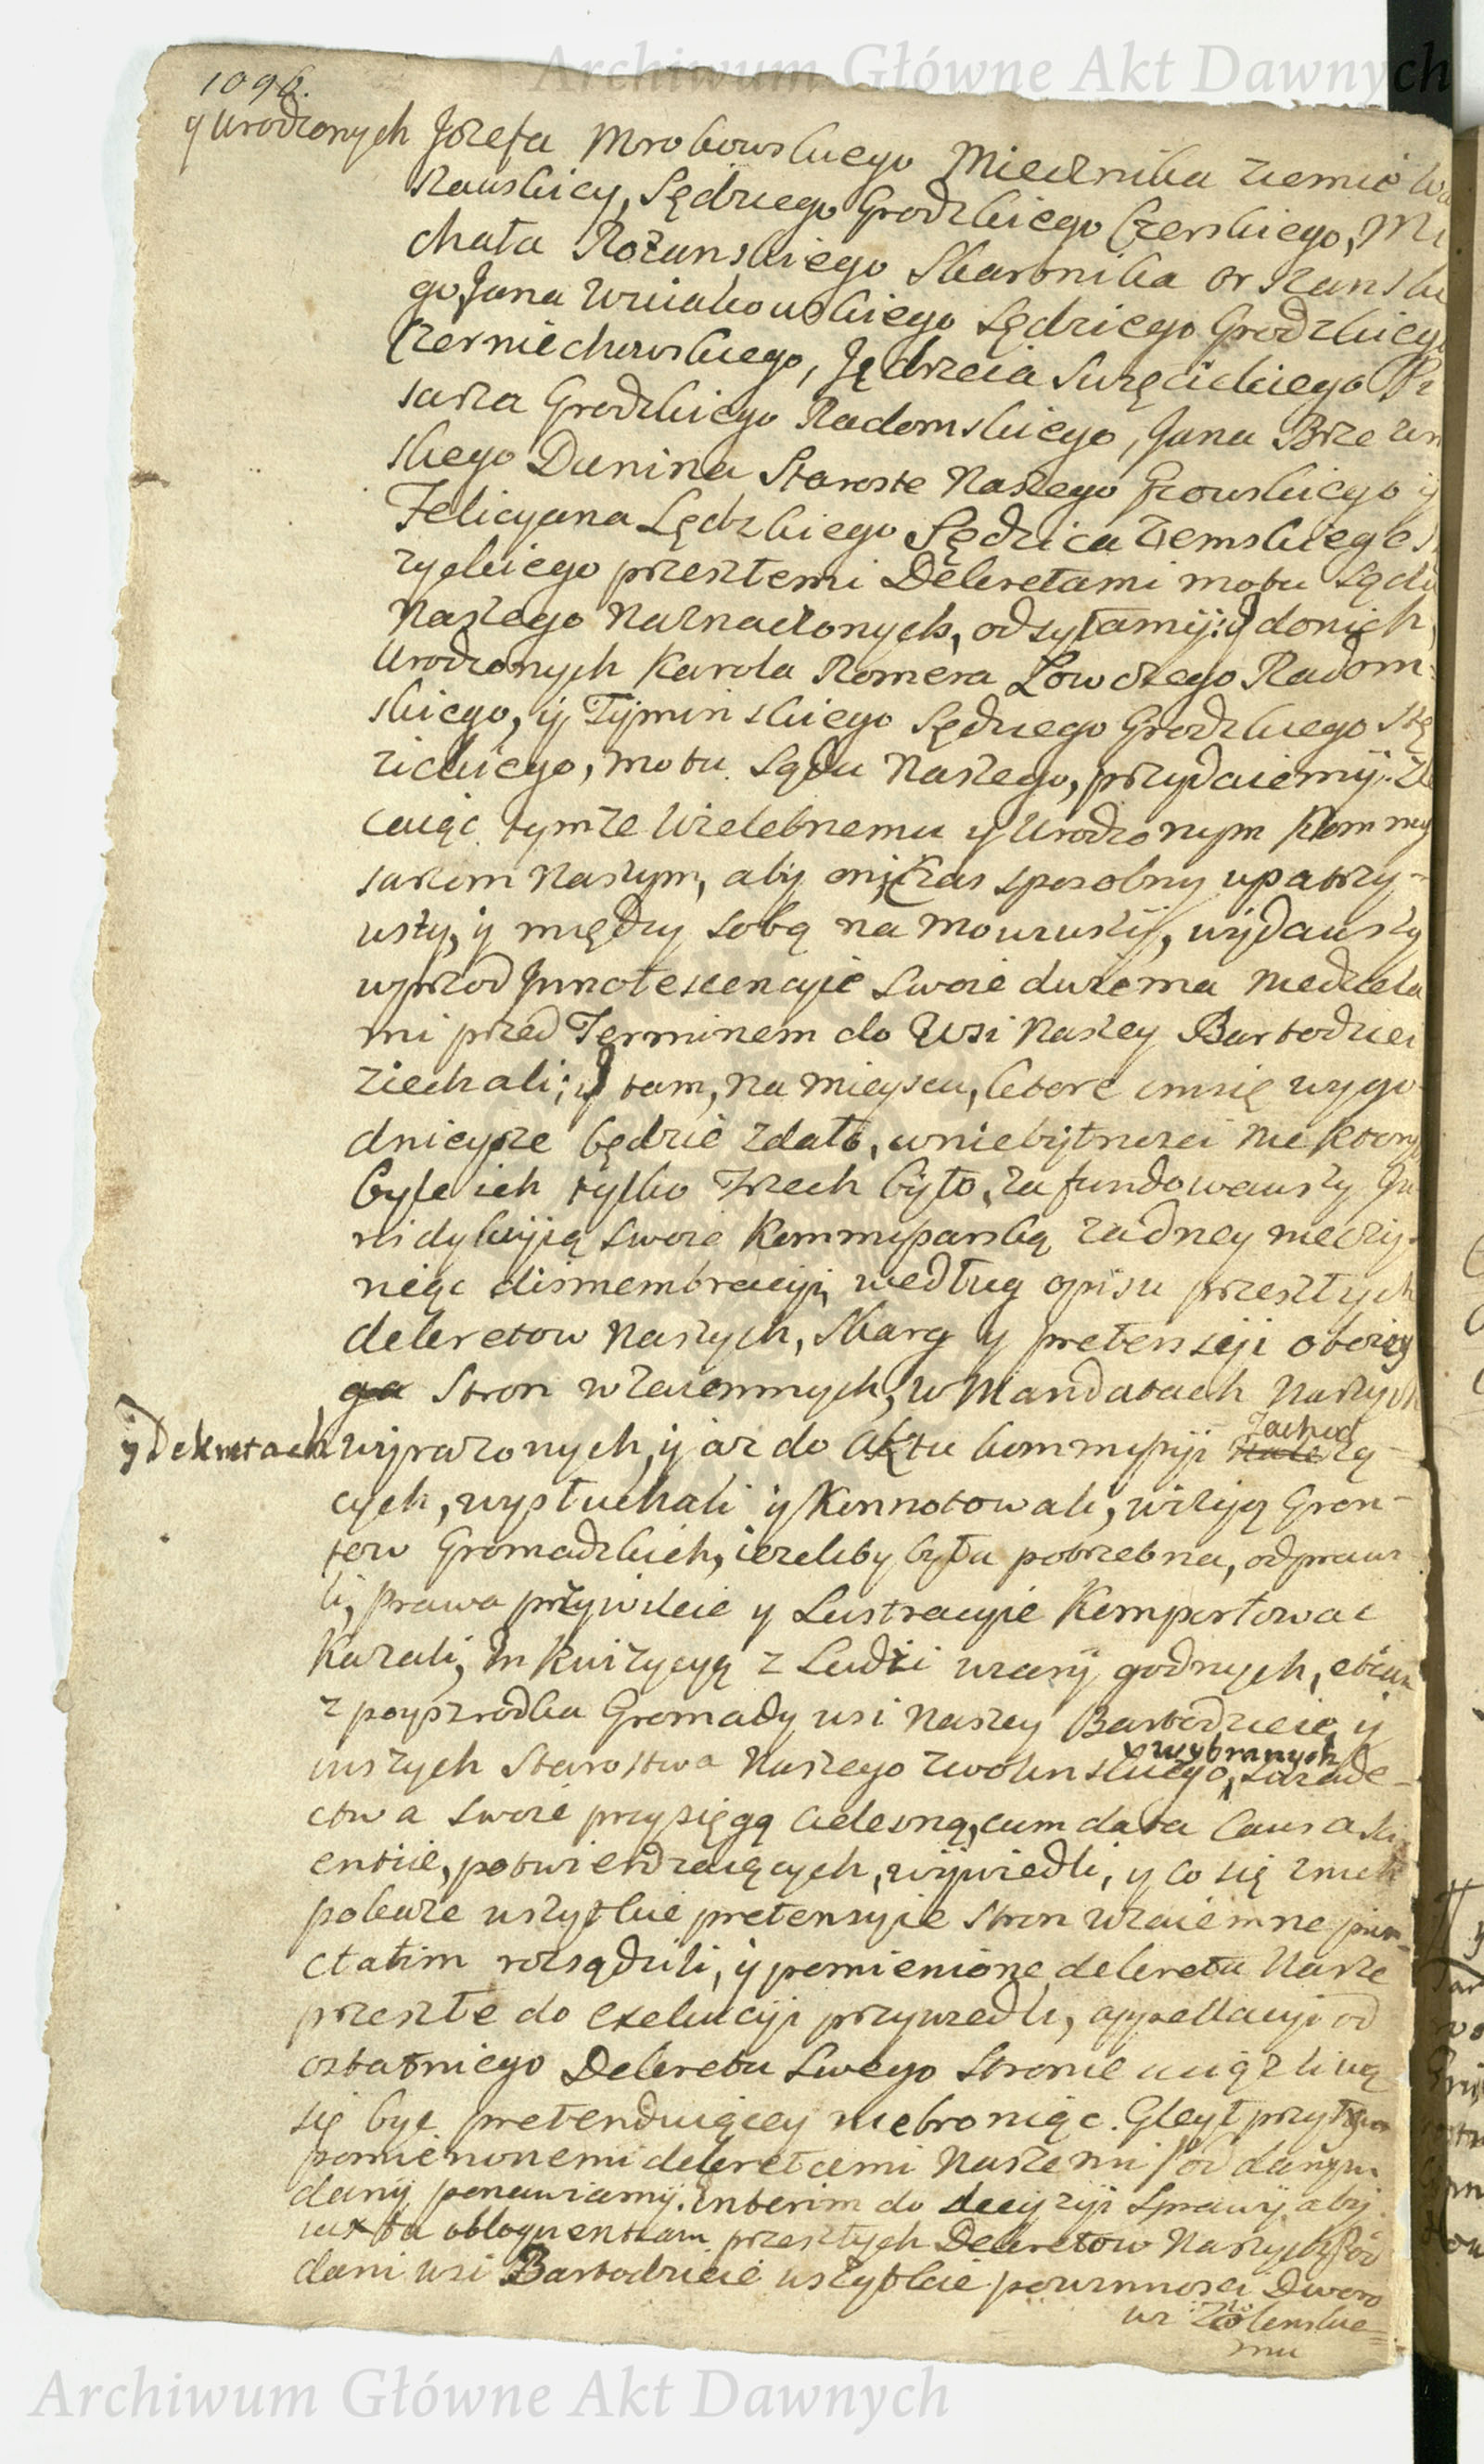 Archiwum Główne Akt Dawnych
1096.
y Urodzonych Jozefa Mrokowskiego Miecznika Ziemie Wa
rauskiey, Sędziego Grodzkiego Czerskiego, Mi
chała Rożanskiego Skarbnika Orszansku
go Jana Wniakowskiego Sędziego Grodzkiego
Czerniechowskiego, Jędrzeia Surzęckiego Pi
sarza Grodzkiego Radomskiego, Jana Brzezin
skiego Dunina Staroste Naszego
Felicyana Sędzkiego Sędzica Ziemskiego S
zyckiego przeszłemi Dekretami motu Sądu
Naszego Naznaczonych, odsyłamy: y donich,
Urodzonych Karola Romera Łowczego Radom-
skiego, y Tyminskiego Sędziego Grodzkiego Stę
zickiego, motu Sądu Naszego, przydaiemy. Zle
caiąc tymze Wielebnemu y Urodzonym Kommy
sarzom Naszym, aby oni Czas sposobny upatrzy-
wszy, y między sobą na mowiwszy, wydawszy
wprzod Innotescencyie swoie dwiema Niedziela
mi przed Terminem do Wsi Naszey Bartodziei
ziechali; y tam, na mieyscu, ktore imsię wygo
dnieysze będzie zdało, wniebytnosci Niektorych
byle ich tylko Trzech było, zafundowawszy Ju
risdykcyią swoie Kommysarską zadney nieczy-
niąc dismembracyi, według opisu przeszłych
dekretow Naszych, Skarg y pretensyi oboiey
ga Stron wzaiemnych, w Mandatach Naszych
y Dekretach wyrazonych, y az do Aktu kommysyi zachod
należą-
cych, wysłuchali y Konnotowali, wizyą Gron-
tow Gromadzkich, iezeliby była potrzebna, odprawi
li, Prawa przywileie y Lustracyie Komportowac
Kazali, Inkwizycyą z Ludzi wiary godnych, etiam
z poyszrodka Gromady wsi Naszey Bartodzieie y
inszych Starostwa Naszego Zwolinskiego, wybranych, swiade-
ctwa swoie przysięgą cielesną, cum data Causa Sci
entiæ, potwierdzaiących, wywiedli, y co się z nich
pokaze wszytkie pretensyie stron wzaiemne pun-
ctatim rozsądzili, y pomienione dekreta Nasze
przeszłe do exekucyi przywiedli, appellacyi od
ostatniego Dekretu swego Stronie uciązliwą
się być pretenduiącey niebroniąc. Gleyt przytym
pomienonemi dekretami Naszemi Poddanym
dany ponawiamy. Interim do decyzyi Sprawy aby
iuxta obloquentiam przeszłych Dekretow Naszych Pod
dani wsi Bartodzieie wszytkie powinnosci Dworo
wi Zwolenskie=
mu
Archiwum Główne Akt Dawnych